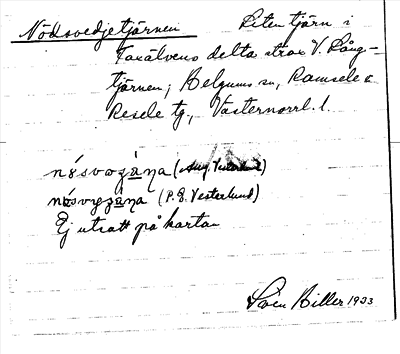 Nödsvedjetjärnen Liten tjärn i
Faxälvens delta strax V. Lång-
tjärnen; Belgums sn, Ramsele o
Resele tg, Västernorrl. l.
(Aug. Vesterlund)
(P. E. Vesterlund)
Ej utsatt på kartan
Sven Biller 1933